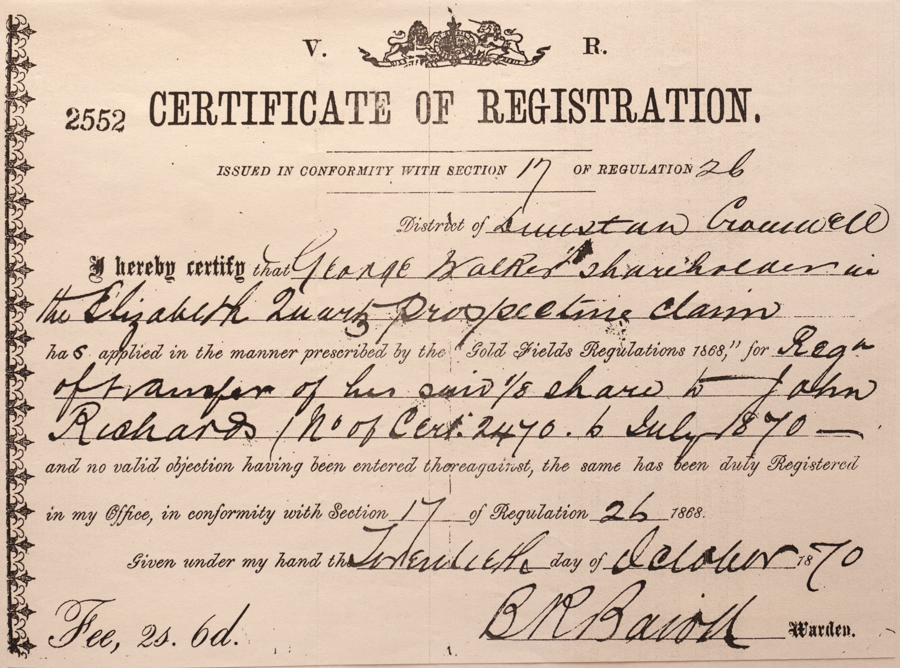 V. R.
2552 CERTIFICATE OF REGISTRATION.
ISSUED IN CONFORMITY WITH SECTION 17 OF REGULATION 26
District of Dunstan Cromwell
I hereby certify that George Walker shareholder in
the Elizabeth Quartz prospecting claim
has applied in the manner prescribed by the "Gold Fields Regulations 1868," for Regn
of transfer of his said 1/8 share to John
Richards (No of Cert. 2470. 6 July 1870 —
and no valid objection having been entered thereagainst, the same has been duly Registered
in my Office, in conformity with Section 17 of Regulation 26 1868.
Given under my hand the day of October 1870
Fee, 2s. 6d. Warden.